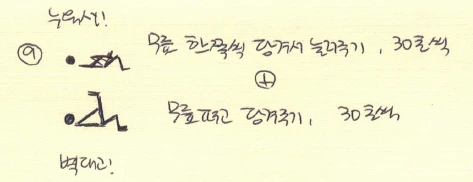 누워서!
⑨ 무릎 한쪽씩 당겨서 눌러주기, 30초씩
+
무릎펴고 당겨주기, 30초씩
벽대고!